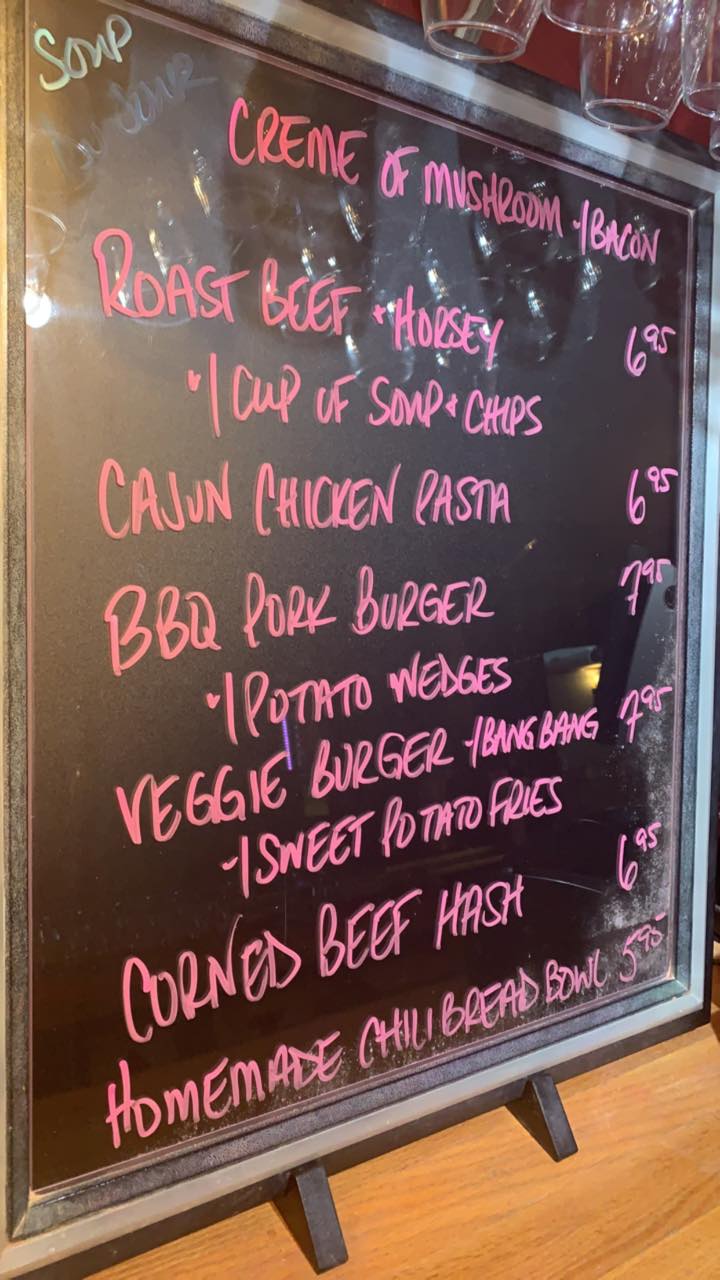 SOUP
Du Jour
CREME OF MUSHROOM w/BACON
ROAST BEEF + HORSEY 6.95
w/ CUP OF SOUP + CHIPS
CAJUN CHICKEN PASTA 6.95
BBQ PORK BURGER 7.95
w/ POTATO WEDGES
VEGGIE BURGER w/BANG BANG 7.95
w/ SWEET POTATO FRIES
CORNED BEEF HASH 6.95
HOMEMADE CHILI BREAD BOWL 5.95